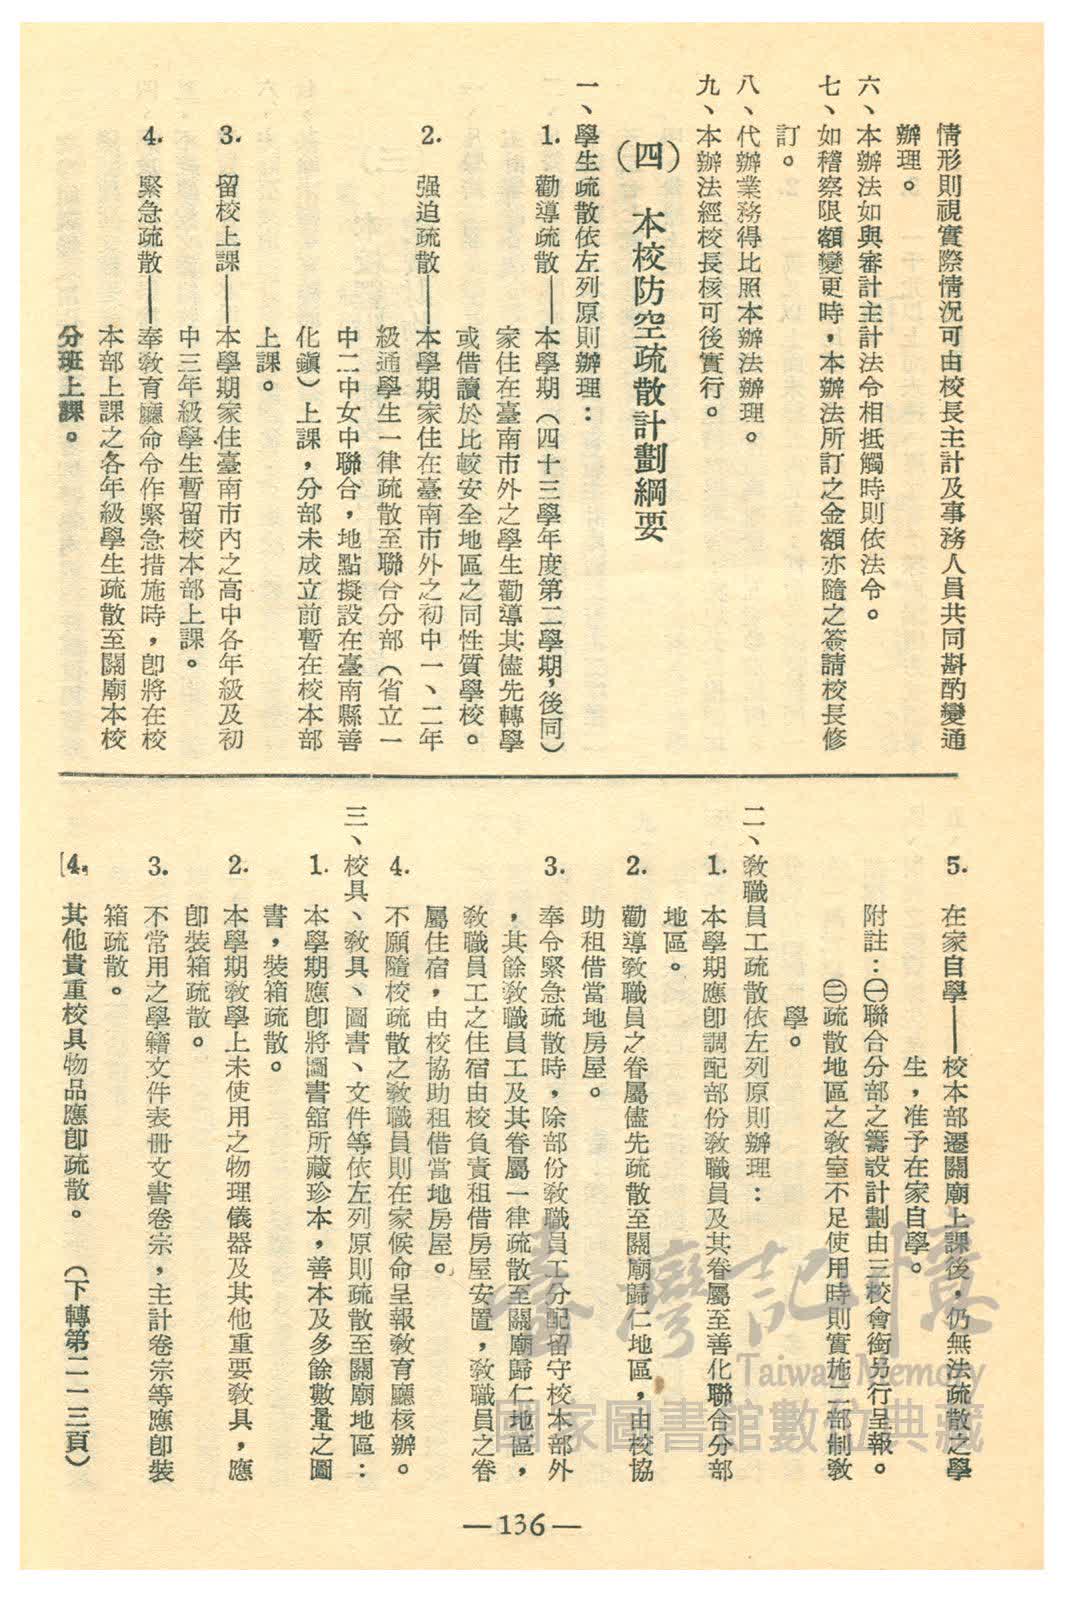 情形則視實際情況可由校長主計及事務人員共同斟酌變通
辦理。
六、本辦法如與審計主計法令相抵觸時則依法令。
七、如稽察限額變更時，本辦法所訂之金額亦隨之簽請校長修
訂。
八、代辦業務得比照本辦法辦理。
九、本辦法經校長核可後實行。
（四）本校防空疏散計劃綱要
一、學生疏散依左列原則辦理：
1. 勸導疏散——本學期（四十三學年度第二學期，後同）
家住在臺南市外之學生勸導其儘先轉學
或借讀於比較安全地區之同性質學校。
2. 强迫疏散——本學期家住在臺南市外之初中一、二年
級通學生一律疏散至聯合分部（省立一
中二中女中聯合，地點擬設在臺南縣善
化鎭）上課，分部未成立前暫在校本部
上課。
3. 留校上課——本學期家住臺南市內之高中各年級及初
中三年級學生暫留校本部上課。
4. 緊急疏散——奉敎育廳命令作緊急措施時，卽將在校
本部上課之各年級學生疏散至關廟本校
分班上課。
5. 在家自學——校本部遷關廟上課後，仍無法疏散之學
生，准予在家自學。
附註：㊀聯合分部之籌設計劃由三校會銜另行呈報。
㊁疏散地區之敎室不足使用時則實施二部制敎
學。
二、敎職員工疏散依左列原則辦理：
1. 本學期應卽調配部份敎職員及其眷屬至善化聯合分部
地區。
2. 勸導敎職員之眷屬儘先疏散至關廟歸仁地區，由校協
助租借當地房屋。
3. 奉令緊急疏散時，除部份敎職員工分配留守校本部外
，其餘敎職員工及其眷屬一律疏散至關廟歸仁地區，
敎職員工之住宿由校負責租借房屋安置，敎職員之眷
屬住宿，由校協助租借當地房屋。
4. 不願隨校疏散之敎職員則在家候命呈報敎育廳核辦。
三、校具、敎具、圖書、文件等依左列原則疏散至關廟地區：
1. 本學期應卽將圖書舘所藏珍本，善本及多餘數量之圖
書，裝箱疏散。
2. 本學期敎學上未使用之物理儀器及其他重要敎具，應
卽裝箱疏散。
3. 不常用之學籍文件表冊文書卷宗，主計卷宗等應卽裝
箱疏散。
4. 其他貴重校具物品應卽疏散。（下轉第二一三頁）
—136—
臺灣記憶
Taiwan Memory
國家圖書館數位典藏